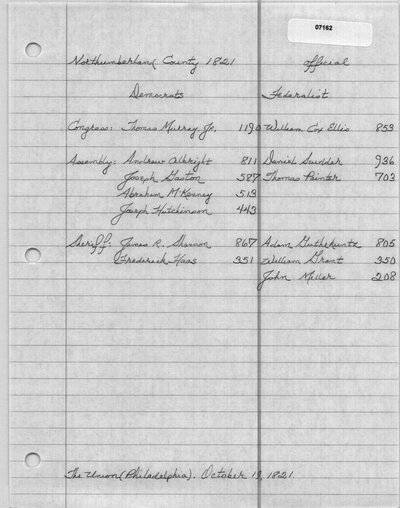 07162
Northumberland County 1821 official
Democrats Federalist
Congress: Thomas Murray Jr. 1190 William Cox Ellis 853
Assembly: Andrew Albright 811 Daniel Scudder 936
Joseph Gaston 587 Thomas Painter 703
Abraham McKinney 513
Joseph Hutchinson 443
Sheriff: James R. Shannon 867 Adam Guthekuntz 805
Frederick Haas 351 William Grant 350
John Miller 208
The Union (Philadelphia). October 19, 1821